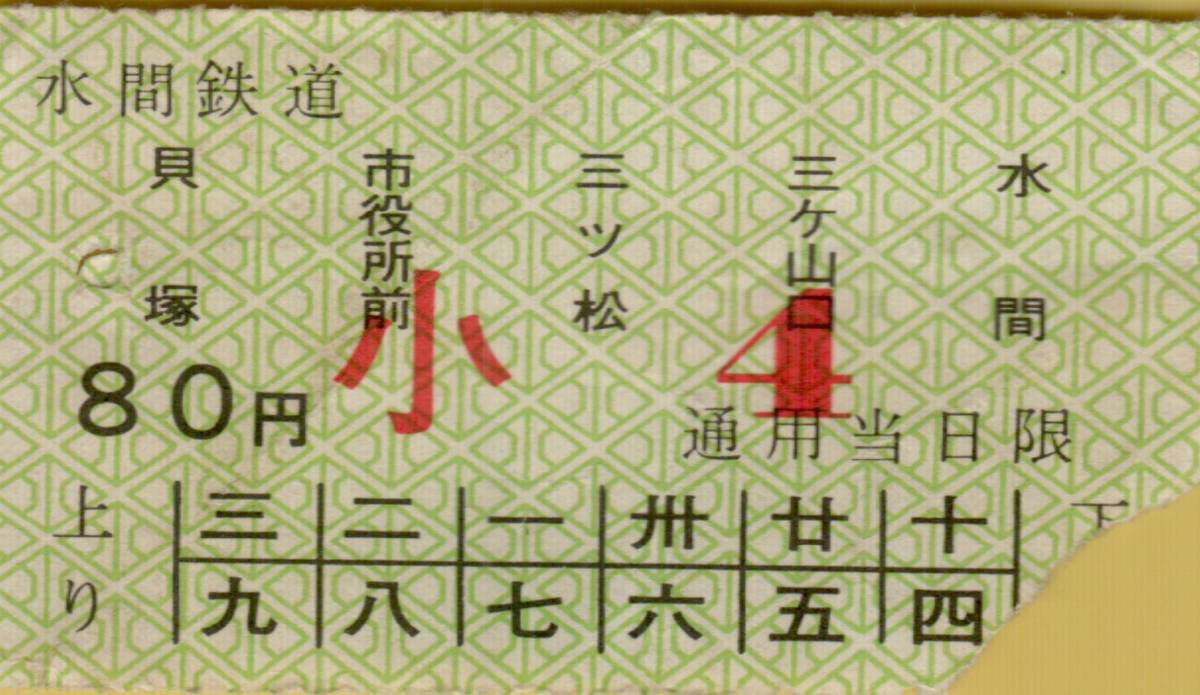 水間鉄道
貝塚
市役所前
三ツ松
三ケ山口
水間
80円
小
4
通用当日限
上り
三 二 一 卅 廿 十
九 八 七 六 五 四
下